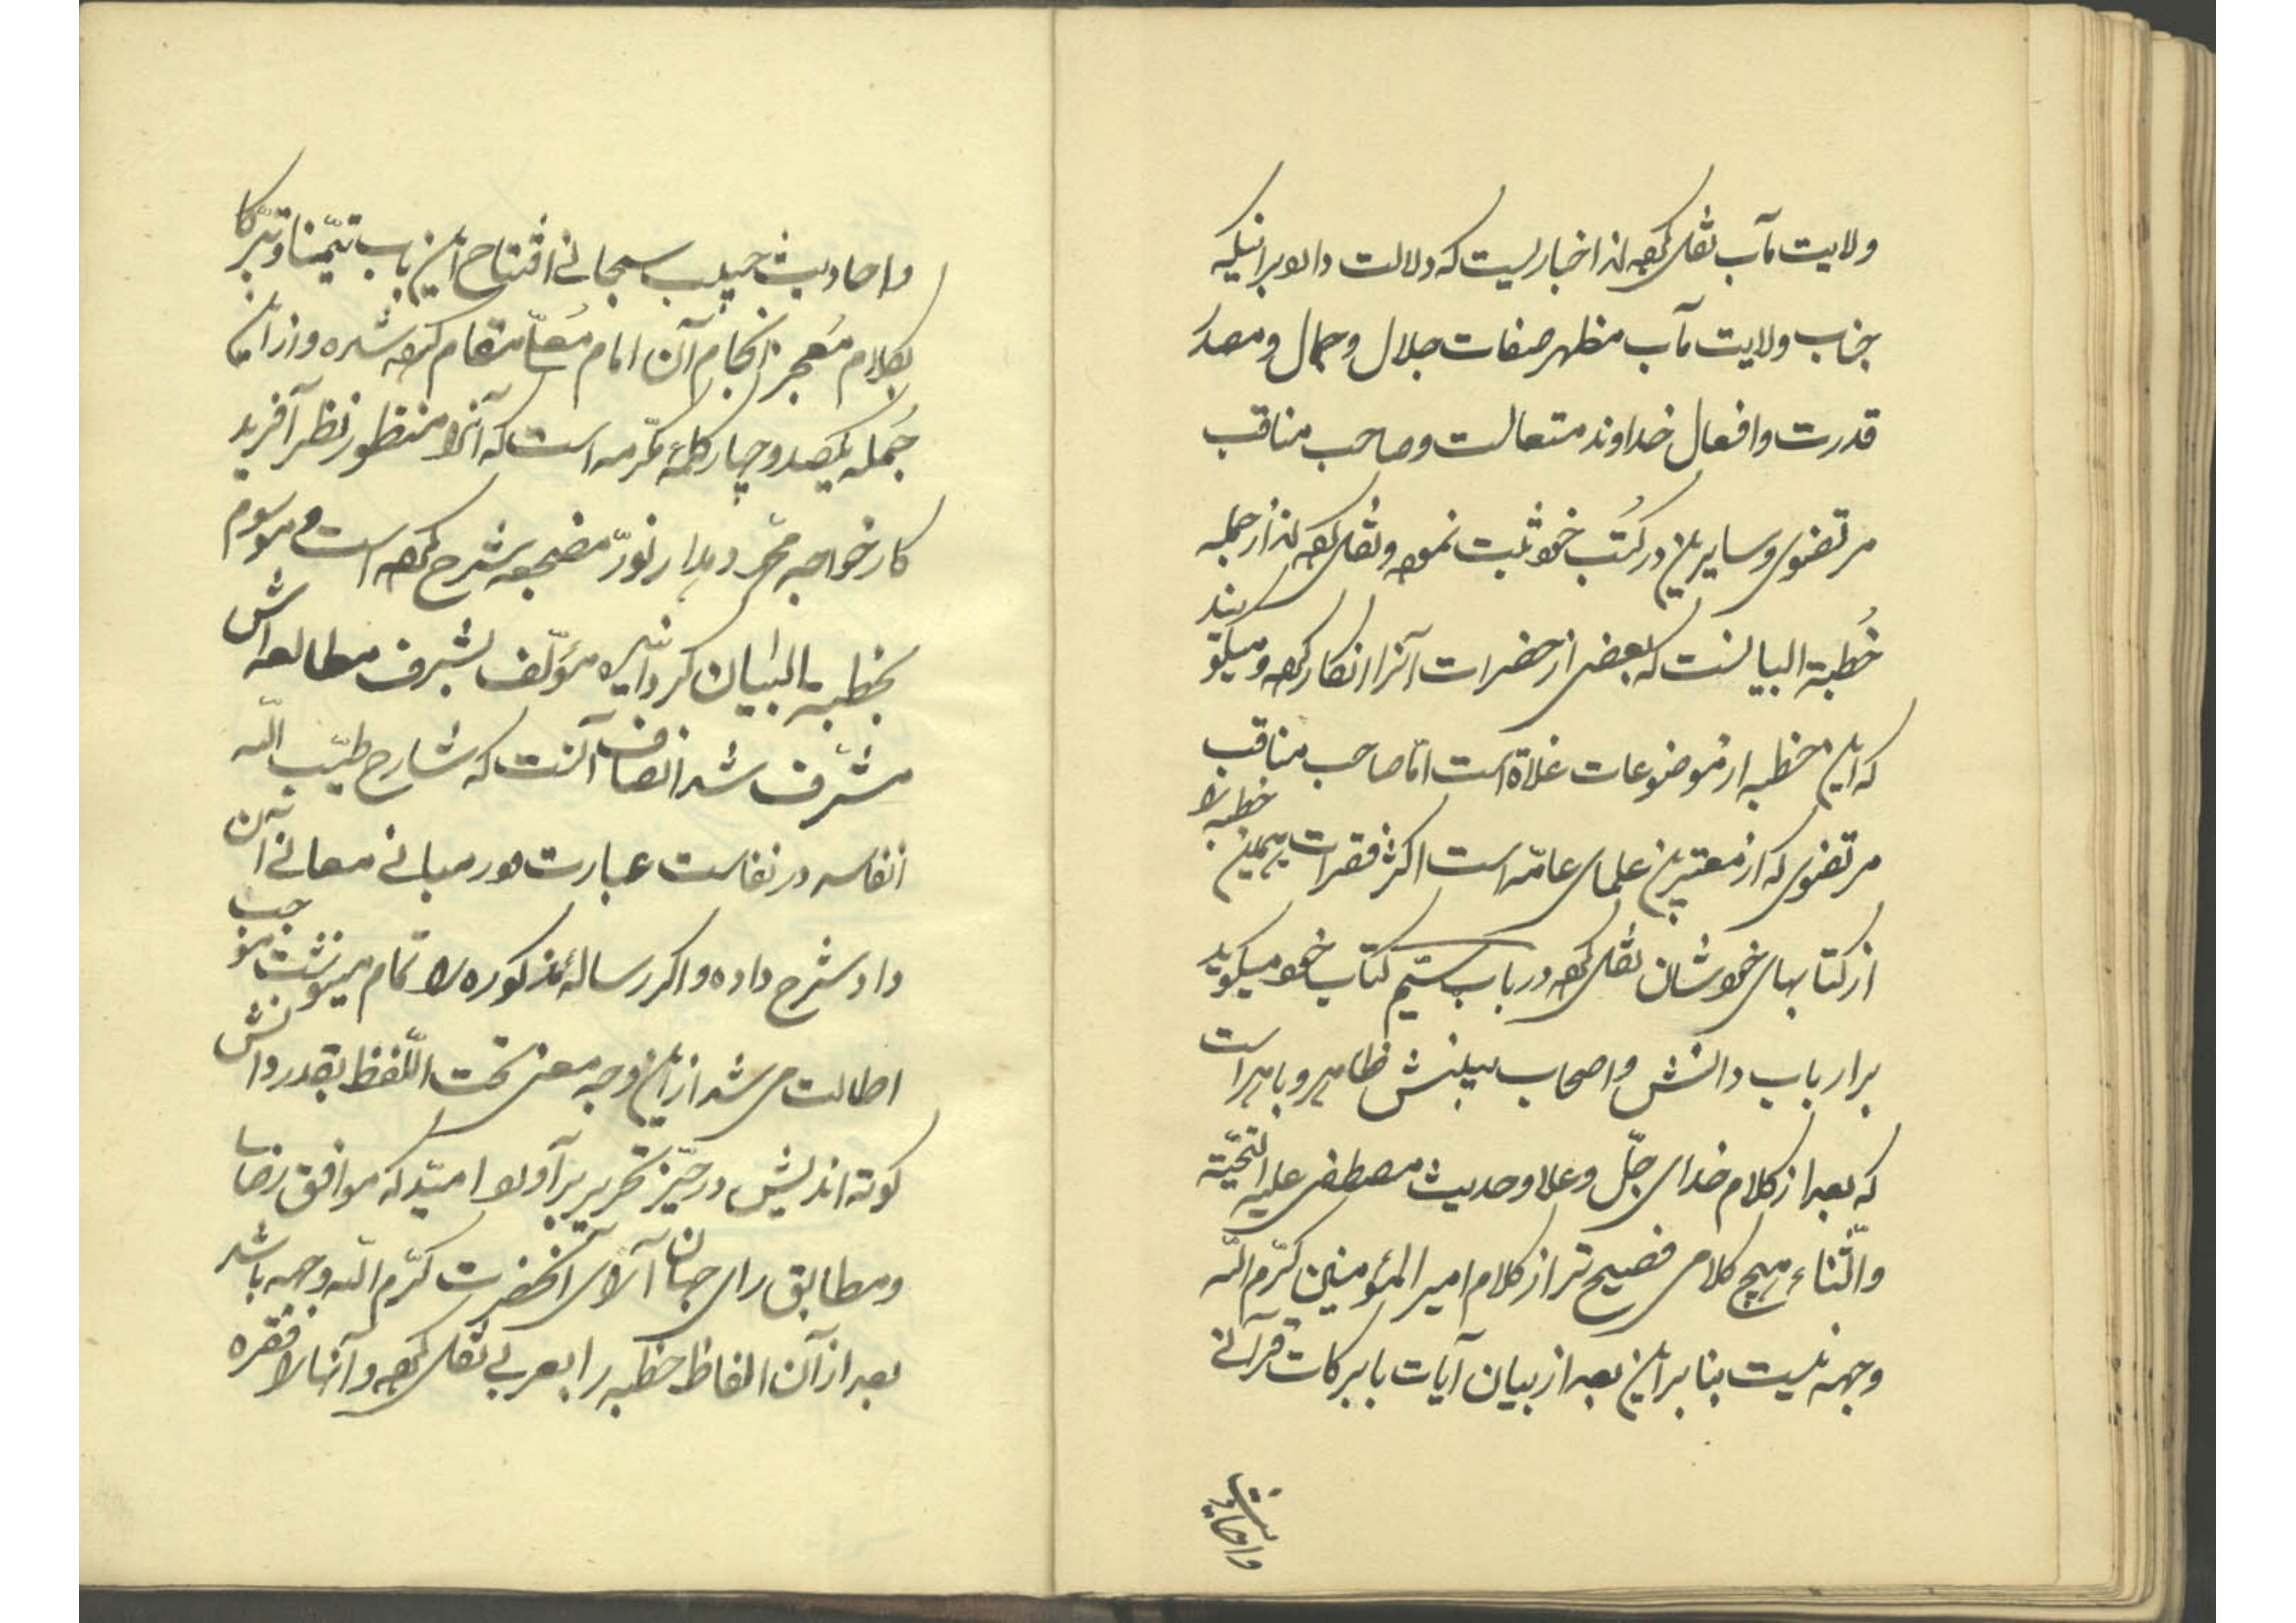 ولایت مآب نقل کرده‌اند اخباریست که دلالت دارد برانیکه
جناب ولایت مآب مظهر صفات جلال و جمال و مصدر
قدرت و افعال خداوند متعالست و صاحب مناقب
مرتضوی و سایرین در کُتب خود ثبت نموده و نقل کرده‌اند از جمله
خُطبة البیانست که بعضی از حضرات آنرا انکار کرده و میگویند
که این خطبه از موضوعات غلاة است امّا صاحب مناقب
مرتضوی که از معتبرین علمای عامّه است اکثر فقرات همین خطبه را
از کتابهای خودشان نقل کرده در باب ستیم کتاب خود میگوید
بر ارباب دانش و اصحاب بینش ظاهر و باهر است
که بعد از کلام خدای جلّ و علا و حدیث مصطفی علیه التحیّة
والثّناء هیچ کلامی فصیح تر از کلام امیر المؤمنین کرّم اللّه
وجهه نیست بنابراین بعد از بیان آیات با برکات قرآنی
واحادیث
واحادیث حبیب سبحانی افتتاح این باب تیمّنا و تبرّکا
بکلام مُعجز انجام آن امام مُعلّا مقام کرده شده و از این
جُمله یکصد و چهار کلمهٔ مکرّمه است که آنرا منظور نظر آفرید
کار خواجه محمّد دهدار نوّر مضجعه شرح کرده است و موسوم
بخطبة البیان گردانیده مؤلّف بشرف مطالعه اش
مشرّف شد انصاف آنست که شارح طیّب اللّه
انفاسه در نفاست عبارت و در مبانی معانی آن
داد شرح داده و اگر رسالهٔ مذکوره را تمام مینوشت موجب
اطالت می شد از این وجه معنی تحت اللّفظ بقدر دانش
کوته اندیش در حیّز تحریر برآورد امیّد که موافق رضا
و مطابق رای جهان آرای آنحضرت کرّم اللّه وجهه باشد
بعد از آن الفاظ خطبه را بعربی نقل کرده و آنها را فقره